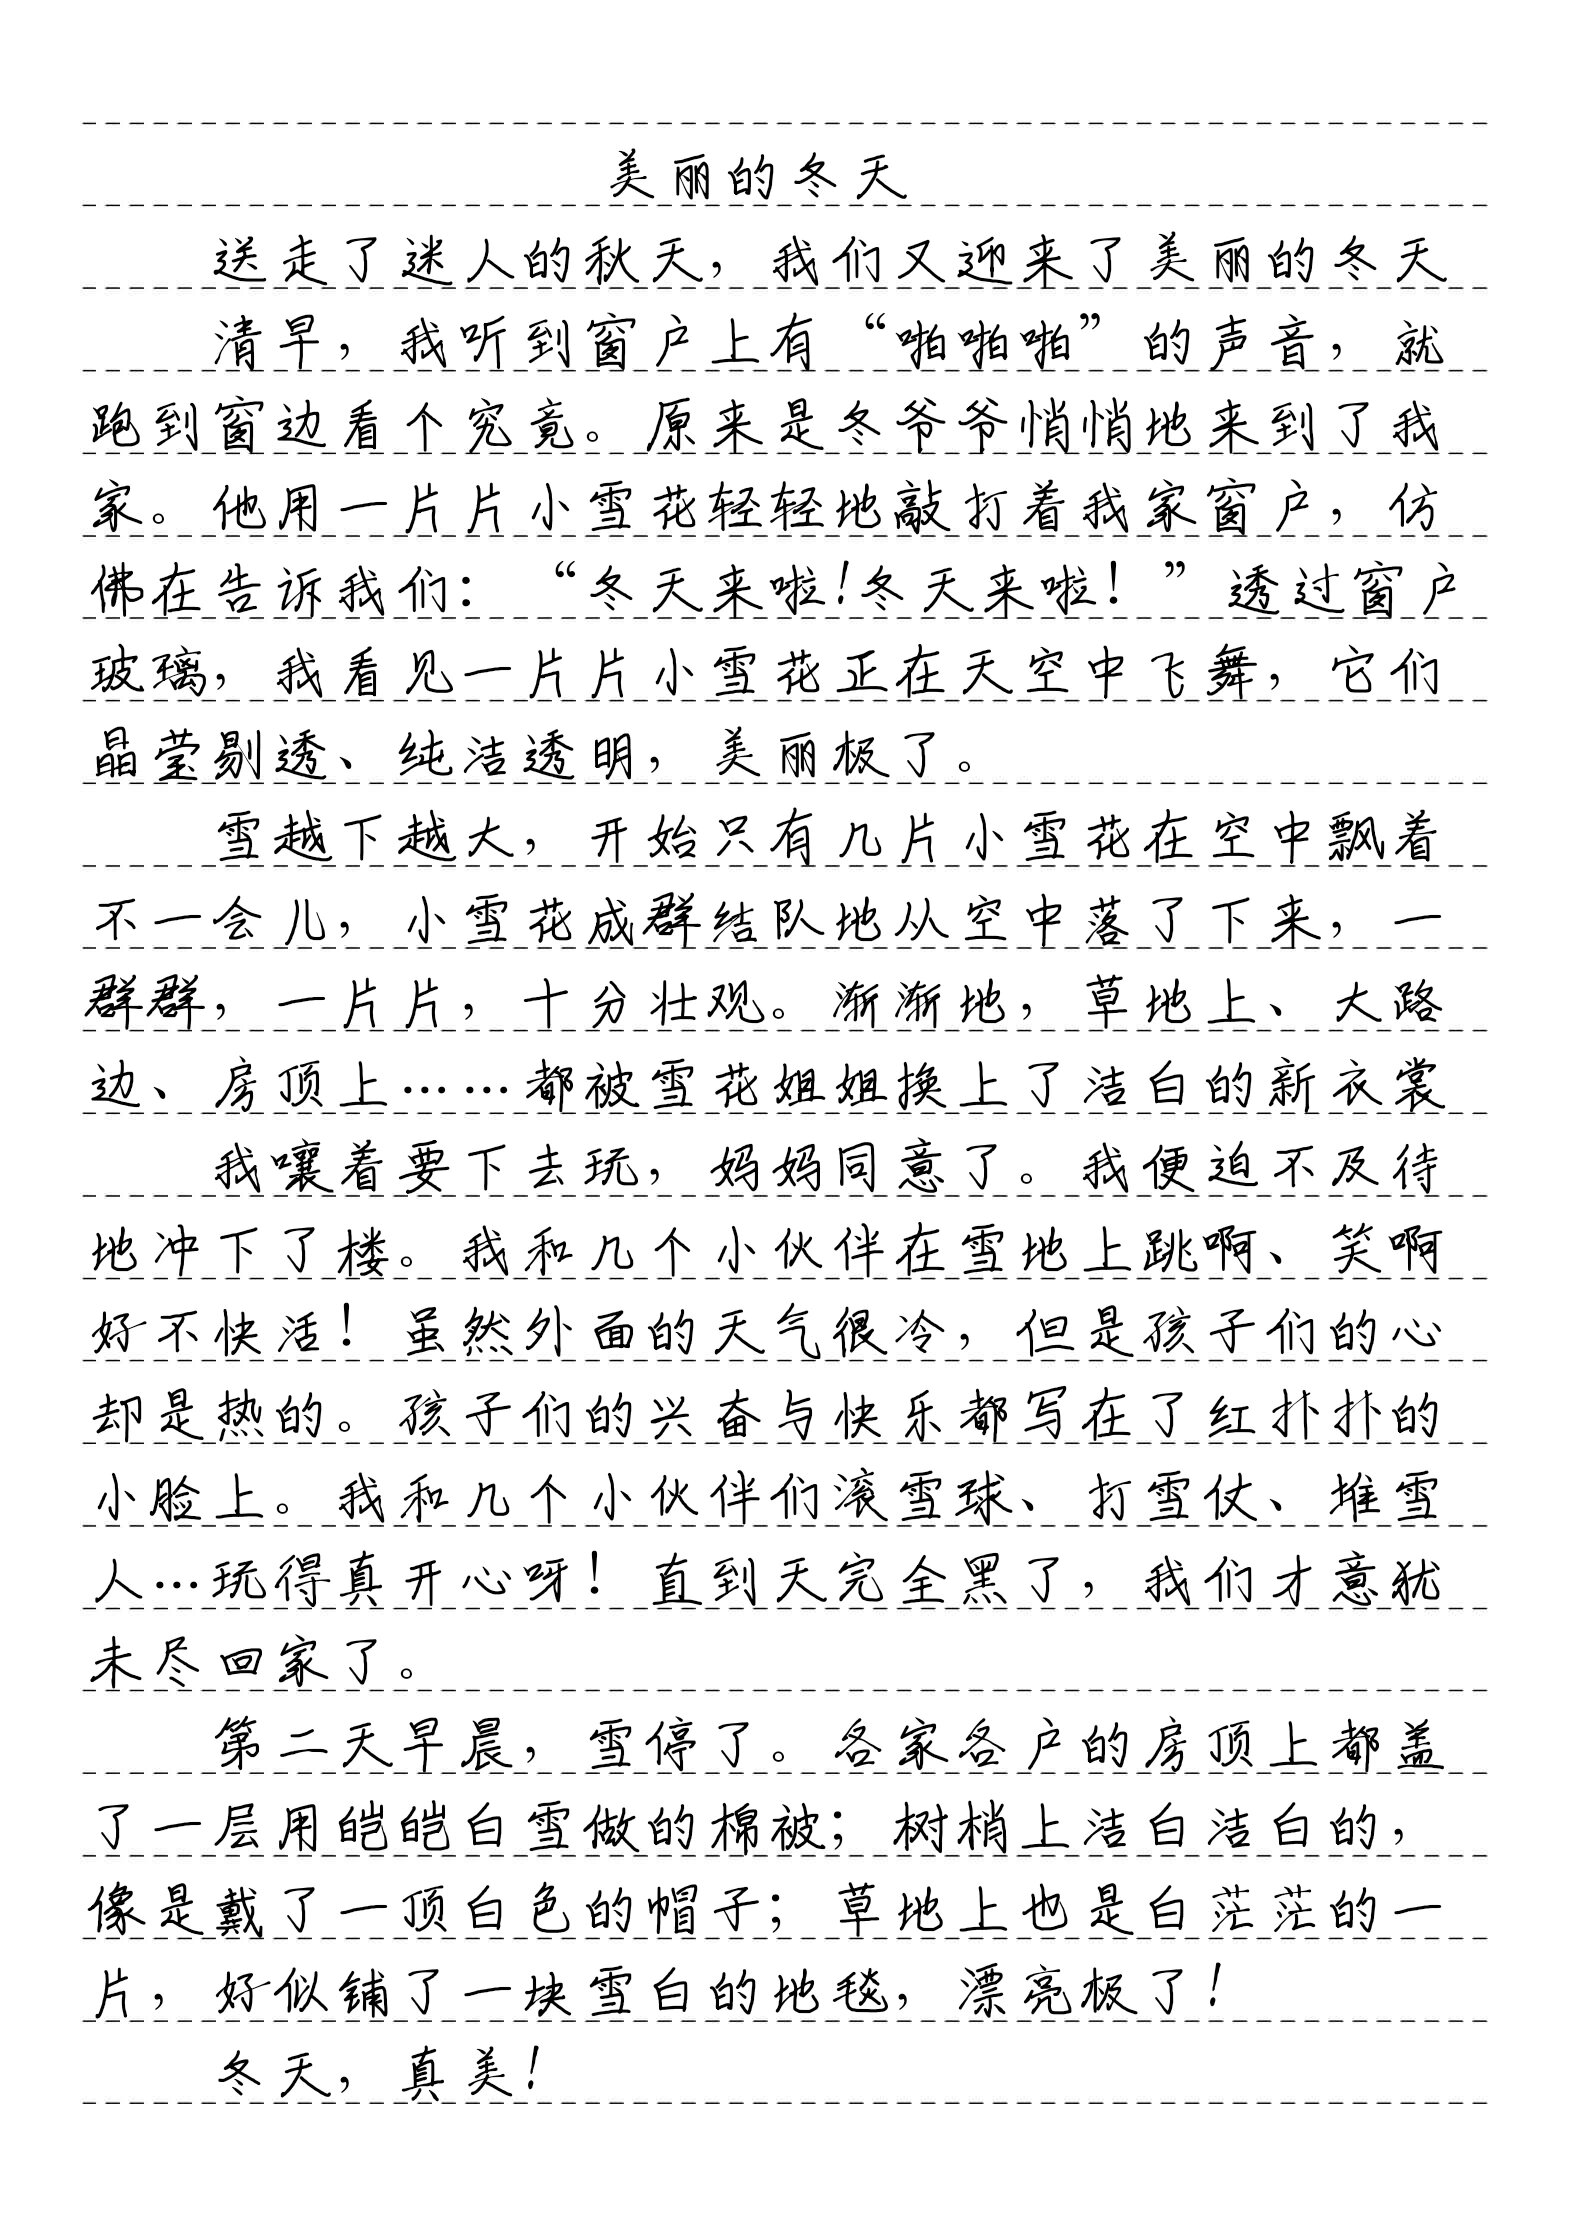 美丽的冬天
送走了迷人的秋天，我们又迎来了美丽的冬天
清早，我听到窗户上有“啪啪啪”的声音，就
跑到窗边看个究竟。原来是冬爷爷悄悄地来到了我
家。他用一片片小雪花轻轻地敲打着我家窗户，仿
佛在告诉我们：“冬天来啦！冬天来啦！”透过窗户
玻璃，我看见一片片小雪花正在天空中飞舞，它们
晶莹剔透、纯洁透明，美丽极了。
雪越下越大，开始只有几片小雪花在空中飘着
不一会儿，小雪花成群结队地从空中落了下来，一
群群，一片片，十分壮观。渐渐地，草地上、大路
边、房顶上……都被雪花姐姐换上了洁白的新衣裳
我嚷着要下去玩，妈妈同意了。我便迫不及待
地冲下了楼。我和几个小伙伴在雪地上跳啊、笑啊
好不快活！虽然外面的天气很冷，但是孩子们的心
却是热的。孩子们的兴奋与快乐都写在了红扑扑的
小脸上。我和几个小伙伴们滚雪球、打雪仗、堆雪
人…玩得真开心呀！直到天完全黑了，我们才意犹
未尽回家了。
第二天早晨，雪停了。各家各户的房顶上都盖
了一层用皑皑白雪做的棉被；树梢上洁白洁白的，
像是戴了一顶白色的帽子；草地上也是白茫茫的一
片，好似铺了一块雪白的地毯，漂亮极了！
冬天，真美！